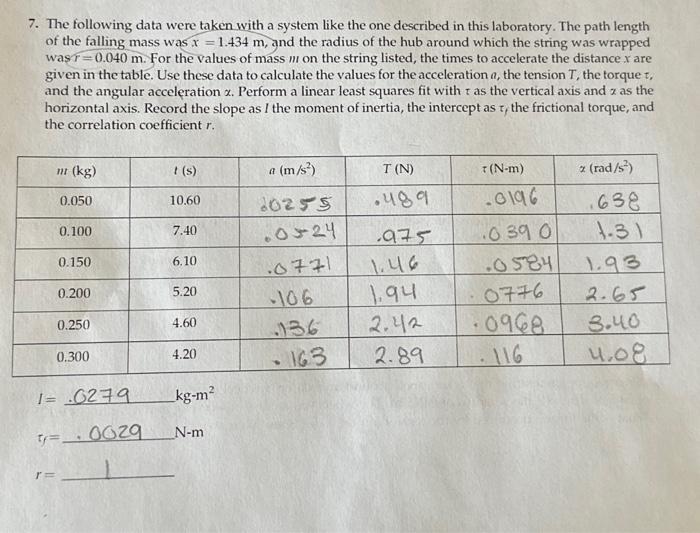 7. The following data were taken with a system like the one described in this laboratory. The path length
of the falling mass was x = 1.434 m, and the radius of the hub around which the string was wrapped
was r = 0.040 m. For the values of mass m on the string listed, the times to accelerate the distance x are
given in the table. Use these data to calculate the values for the acceleration a, the tension T, the torque τ,
and the angular acceleration α. Perform a linear least squares fit with τ as the vertical axis and α as the
horizontal axis. Record the slope as I the moment of inertia, the intercept as τf the frictional torque, and
the correlation coefficient r.
m (kg) t (s) a (m/s²) T (N) τ (N-m) α (rad/s²)
0.050 10.60 .0255 .489 .0196 .638
0.100 7.40 .0524 .975 .0390 1.31
0.150 6.10 .0771 1.46 .0584 1.93
0.200 5.20 .106 1.94 .0776 2.65
0.250 4.60 .136 2.42 .0968 3.40
0.300 4.20 .163 2.89 .116 4.08
I = .0279 kg-m²
τf = .0029 N-m
r = 1